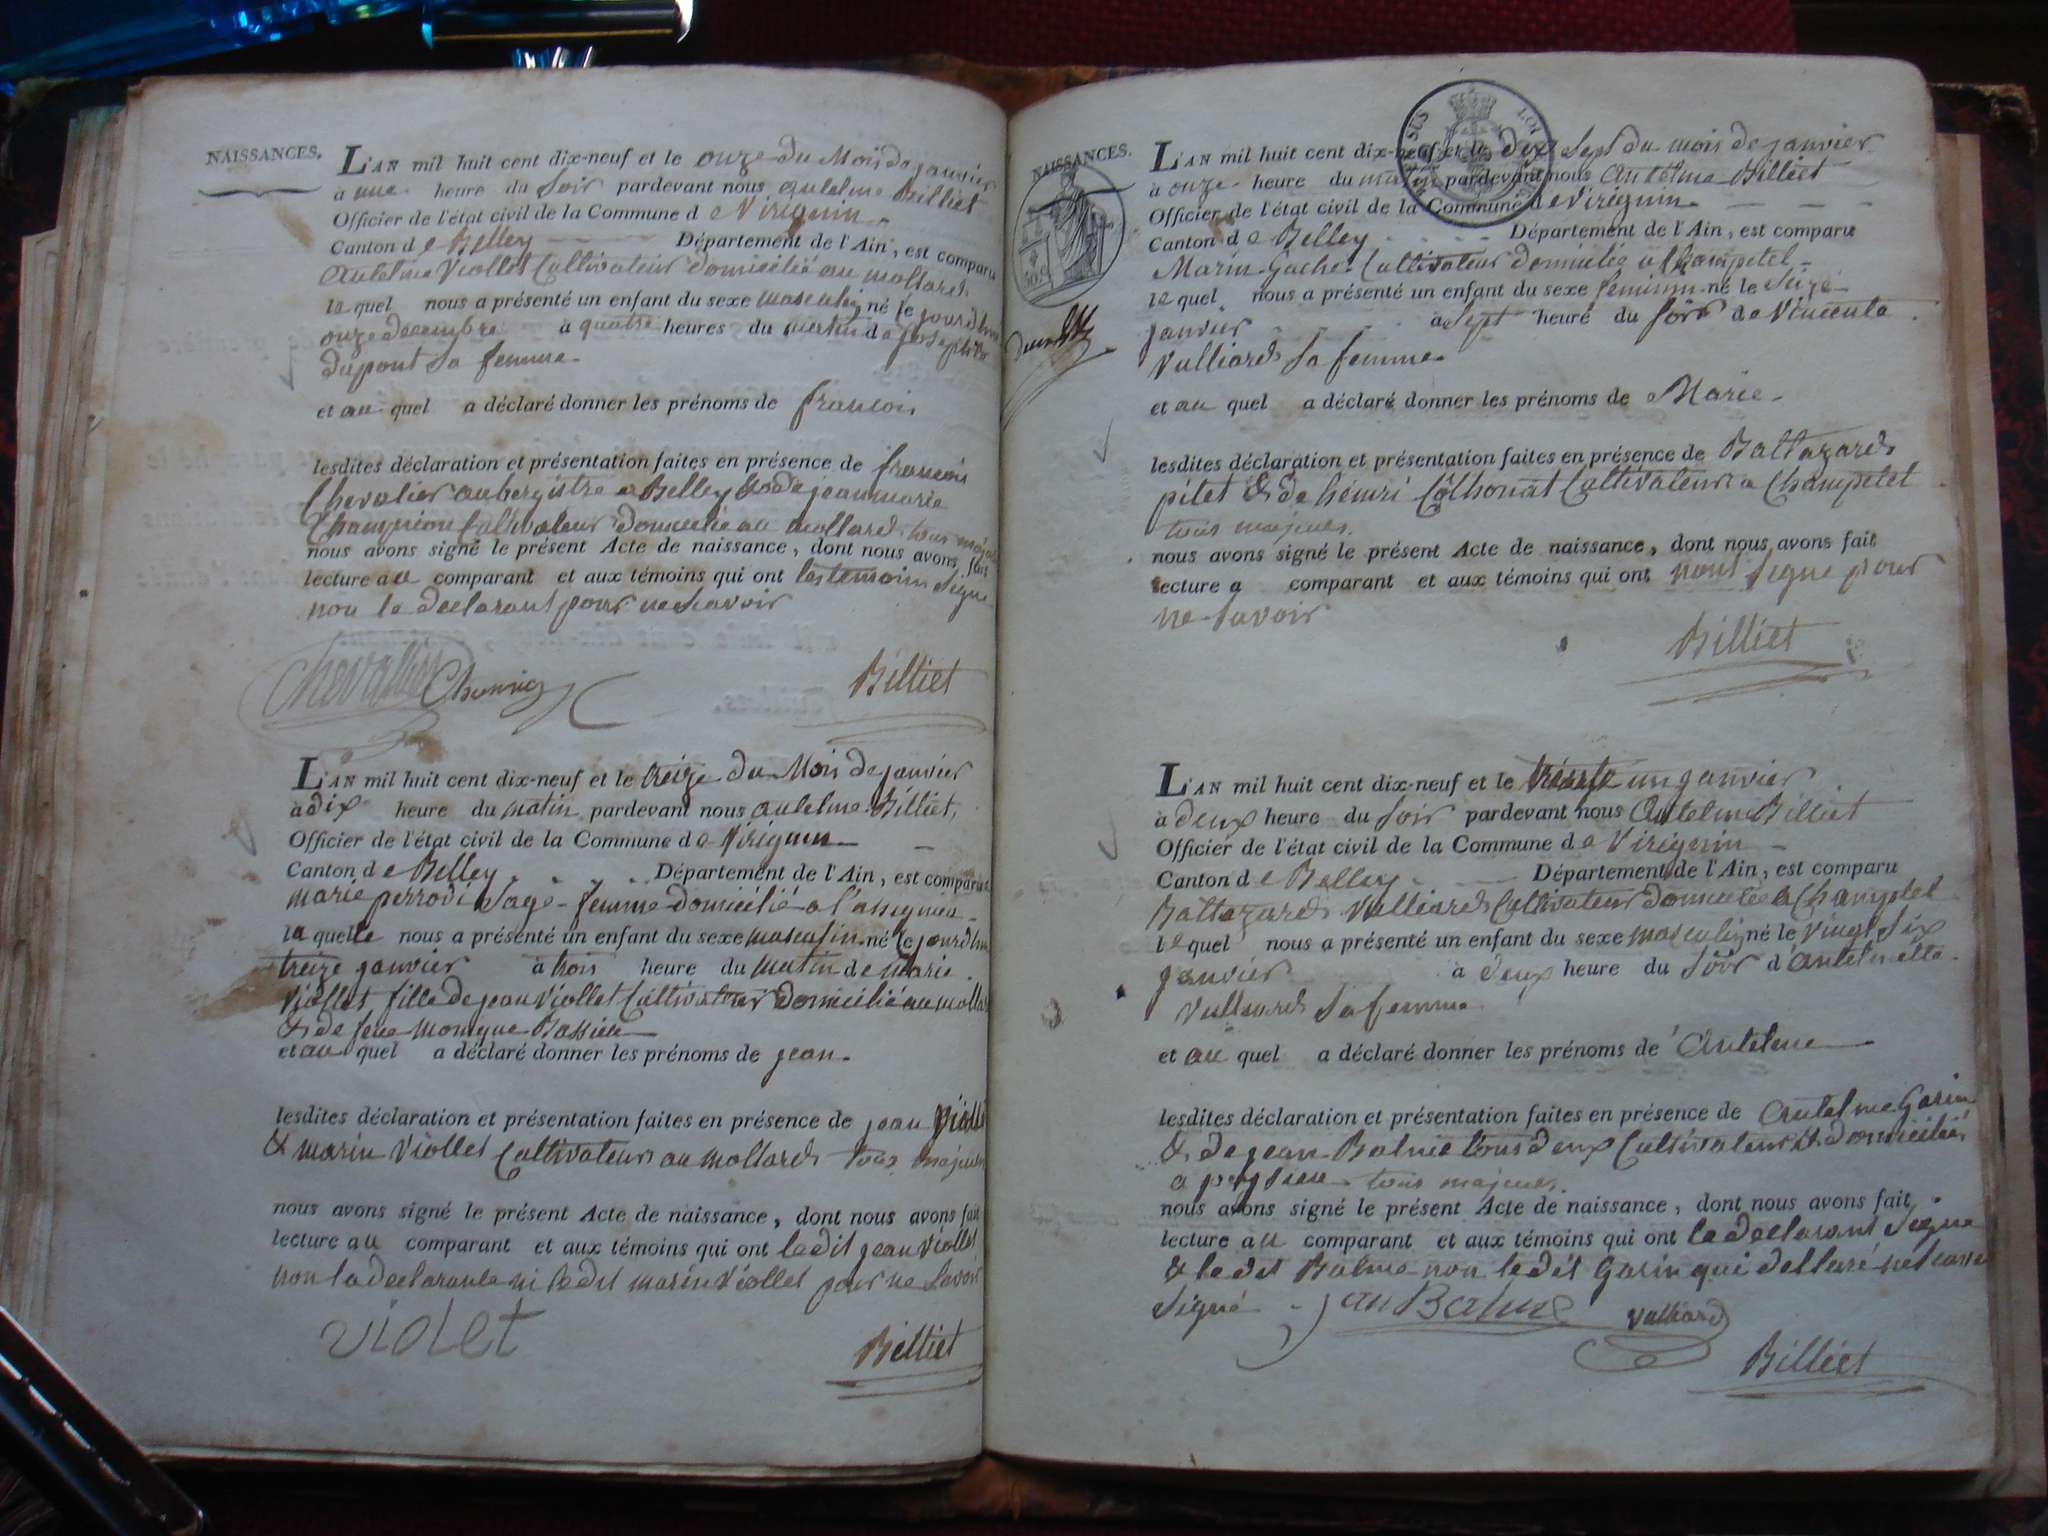 NAISSANCES.
L'AN mil huit cent dix-neuf et le onze du Mois de janvier
a une heure du Soir pardevant nous antelme Billiet
Officier de l'état civil de la Commune de Virignin
Canton de Belley Département de l'Ain, est comparu
antelme Viollet Cultivateur domicilié au mollard
le quel nous a présenté un enfant du sexe masculin né le jourdhui
onze decembre à quatre heures du matin de
dupont Sa femme
et au quel a déclaré donner les prénoms de francois
lesdites déclaration et présentation faites en présence de francois
Chevalier aubergistre a Belley & de jean marie
Champion Cultivateur domicilié au mollard tous majeurs
nous avons signé le présent Acte de naissance, dont nous avons fait
lecture au comparant et aux témoins qui ont les temoins Signe
non le declarant pour ne Savoir
Chevallier
Billiet
L'AN mil huit cent dix-neuf et le treize du Mois de janvier
à dix heure du matin pardevant nous antelme Billiet,
Officier de l'état civil de la Commune de Virignin
Canton de Belley Département de l'Ain, est comparu
marie perrodi Sage-femme domicilié a l'assignieu
la quelle nous a présenté un enfant du sexe masculin né le jourdhui
treize janvier à trois heure du matin de marie
Viollet fille de jean Viollet Cultivateur domicilié au mollard
& de feue monique Bassieu
et au quel a déclaré donner les prénoms de jean
lesdites déclaration et présentation faites en présence de jean Viollet
& marin Viollet Cultivateurs au mollard tous majeurs
nous avons signé le présent Acte de naissance, dont nous avons fait
lecture au comparant et aux témoins qui ont ledit jean Viollet
non la declarante ni ledit marin Viollet pour ne Savoir
violet
Billiet
NAISSANCES.
L'AN mil huit cent dix-neuf et le dix Sept du mois de janvier
à onze heure du matin pardevant nous Antelme Billiet
Officier de l'état civil de la Commune de Virignin
Canton de Belley Département de l'Ain, est comparu
Marin Gache Cultivateur domicilié a Champetel
le quel nous a présenté un enfant du sexe feminin né le Seize
janvier à Sept heure du Soir de Vincente
Vulliard Sa femme
et au quel a déclaré donner les prénoms de Marie
lesdites déclaration et présentation faites en présence de Baltazard
pitet & de henri Cultivateurs a Champetel
tous majeurs.
nous avons signé le présent Acte de naissance, dont nous avons fait
lecture a comparant et aux témoins qui ont nont Signe pour
ne Savoir
Billiet
L'AN mil huit cent dix-neuf et le trente un janvier
à deux heure du Soir pardevant nous Antelme Billiet
Officier de l'état civil de la Commune de Virignin
Canton de Belley Département de l'Ain, est comparu
Baltazard Vulliard Cultivateur domicilié a Champtel
le quel nous a présenté un enfant du sexe masculin né le vingt Six
janvier à deux heure du Soir d'antelmette
Vulliard Sa femme
et au quel a déclaré donner les prénoms de Antelme
lesdites déclaration et présentation faites en présence de Antelme Gorin
& de jean Balme tous deux Cultivateurs & domiciliés
a peyzieu tous majeurs.
nous avons signé le présent Acte de naissance, dont nous avons fait
lecture au comparant et aux témoins qui ont le declarant Signe
& ledit Balme non ledit Gorin qui
Signé jan Balme Vulliard
Billiet